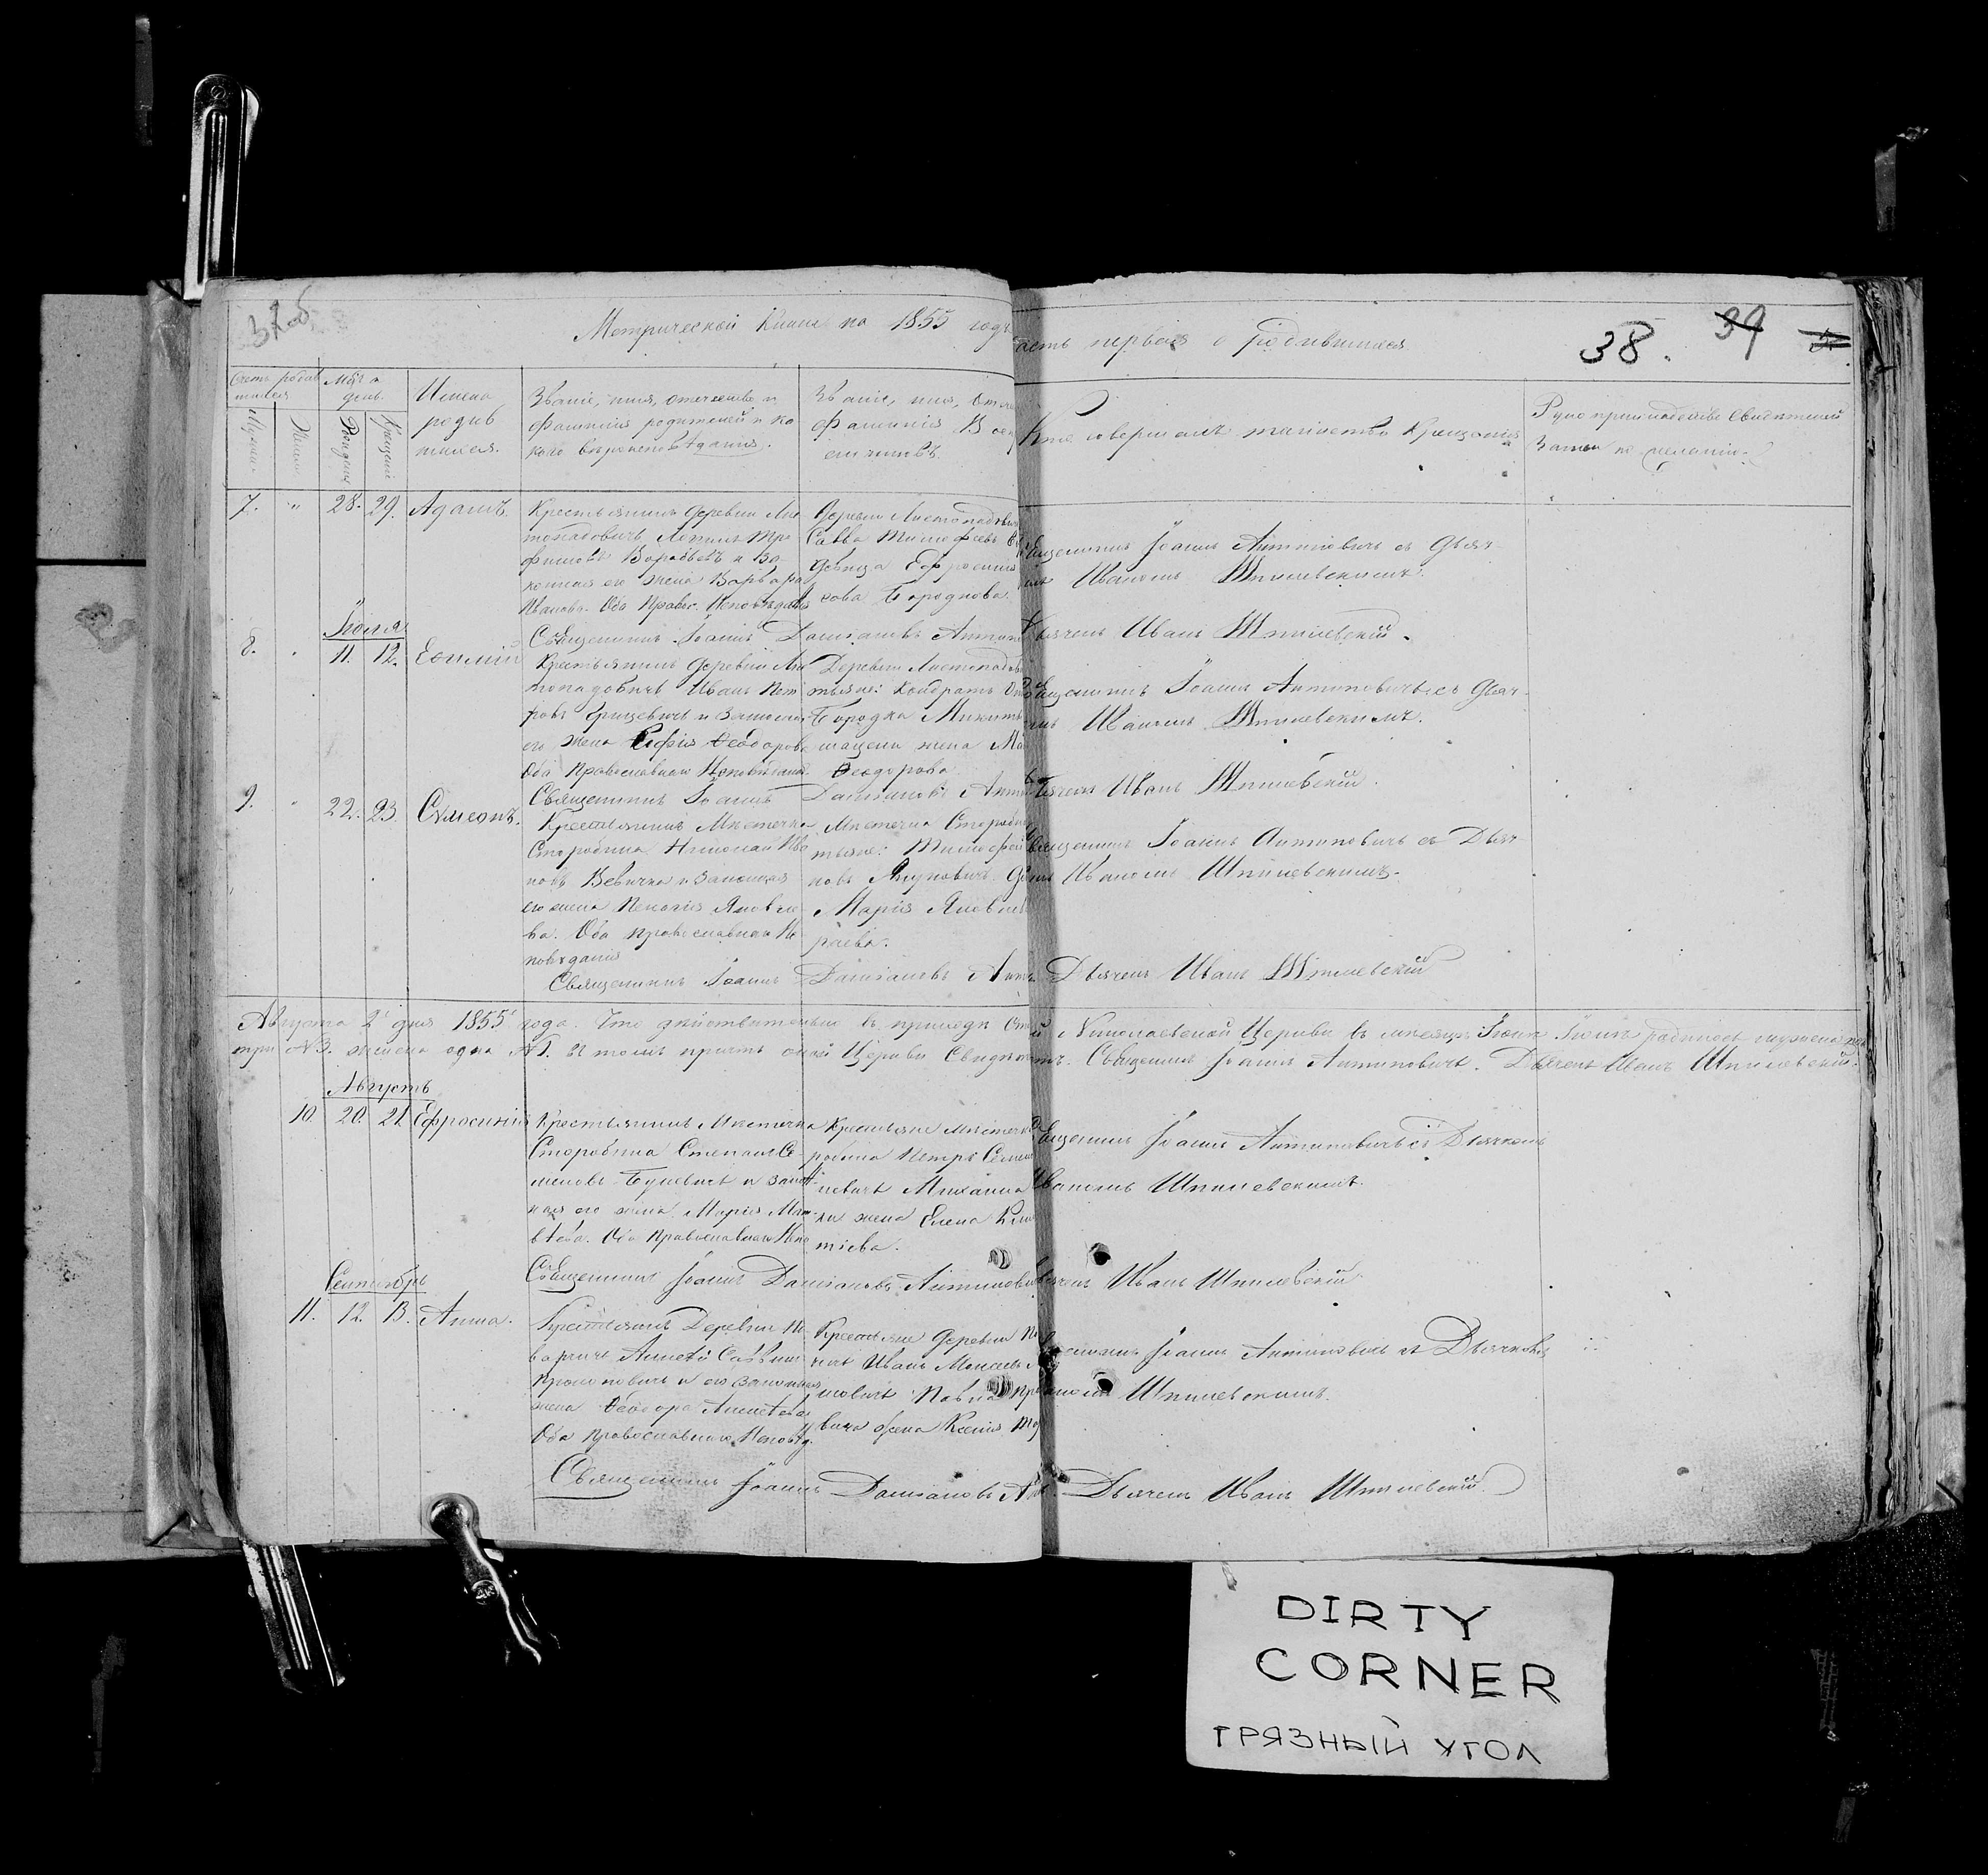 37 об
Метрической Книги на 1855 годъ
асть первая о родившихся.
38. 39
Счетъ родив
шихся
Мужеска
Женска
Мѣс. и
день.
Рожденія
Крещенія
Имена
родив
шихся.
Званіе, имя, отечество и
фамилія родителей и ка
кого вѣроисповѣданія.
Званіе, имя, отече
фамилія Восп
емниковъ.
Кто совершалъ таинство Крещенія
Рукоприкладство Свидетелей
Записи по желанію.
7. " 28. 29. Адамъ.
Крестьянинъ деревни Лис
топадовичъ
Воробьевъ и За
конная его жена Варвара
Иванова. Оба Правос. Исповѣданія
Деревни Листопадович
Савва Тимофеевъ
Девица Ефросинія
кова Бороднова.
ященникъ Іоаннъ Антиповичъ съ Дьяч
Иваномъ Шпилевскимъ.
Священникъ Іоаннъ Даміановъ Антип
Дьячекъ Иванъ Шпилевскій.
Іюля
8. " 11. 12. Евфимій
Крестьянинъ деревни Лис
топадовичъ Иванъ Пет
ровъ Грицевичъ и законная
его жена Софія Ѳеодорова
Оба Православнаго Исповѣданія.
Деревни Листопадов
тьяне: Кондратъ
Бородка Микиты
жена Ма
Ѳеодорова
ященникъ Іоаннъ Антиповичъ съ Дьяч
Иваномъ Шпилевскимъ.
Священникъ Іоаннъ Даміановъ Антип
Дьячекъ Иванъ Шпилевскій.
9. " 22. 23. Сѵмеонъ.
Крестьянинъ Мѣстечка
Старобина Николай Ива
новъ Вевичка и Законная
его жена Пелагія Яковле
ва. Оба православнаго Ис
повѣданія
Мѣстечка Старобин
тьяне: Тимофей
новъ Якуповичъ
Марія Яковле
раева.
вященникъ Іоаннъ Антиповичъ съ Дьяч
Иваномъ Шпилевскимъ.
Священникъ Іоаннъ Даміановъ Антип
Дьячекъ Иванъ Шпилевскій
Августа 2 дня 1855 года. Что дѣйствительно въ приходѣ Ст й Николаевской Церкви въ мѣсяцѣ Іюнѣ Іюлѣ родилось мужеска
три №3. женска одна №1. въ томъ причтъ оной Церкви Свидѣтельствуетъ. Священникъ Іоаннъ Антиповичъ. Дьячекъ Иванъ Шпилевскій.
Августъ
10. 20. 21. Ефросинія
Крестьянинъ Мѣстечка
Старобина Степанъ Се
меновъ Буцевичъ и закон
ная его жена Марія Мат
вѣева. Оба Православнаго Испо
Крестьяне Мѣстечка
робина Петръ Семен
Михаила
жена Елена
тіева.
ященникъ Іоаннъ Антиповичъ съ Дьячкомъ
Иваномъ Шпилевскимъ.
Священникъ Іоаннъ Даміановъ Антипов
Дьячекъ Иванъ Шпилевскій
Сентябрь
11. 12. 13. Анна.
Крестьянинъ Деревни По
варичи Савин
Прокоповичъ и его законная
жена Ѳеодора
Оба Православнаго Исповѣд.
Крестьяне деревни По
Иванъ Моисеевъ
Павла Про
вича жена Ксенія
щенникъ Іоаннъ Антиповичъ съ Дьячкомъ
Шпилевскимъ.
Священникъ Іоаннъ Даміановъ Ант
Дьячекъ Иванъ Шпилевскій.
DIRTY
CORNER
ГРЯЗНЫЙ УГОЛ